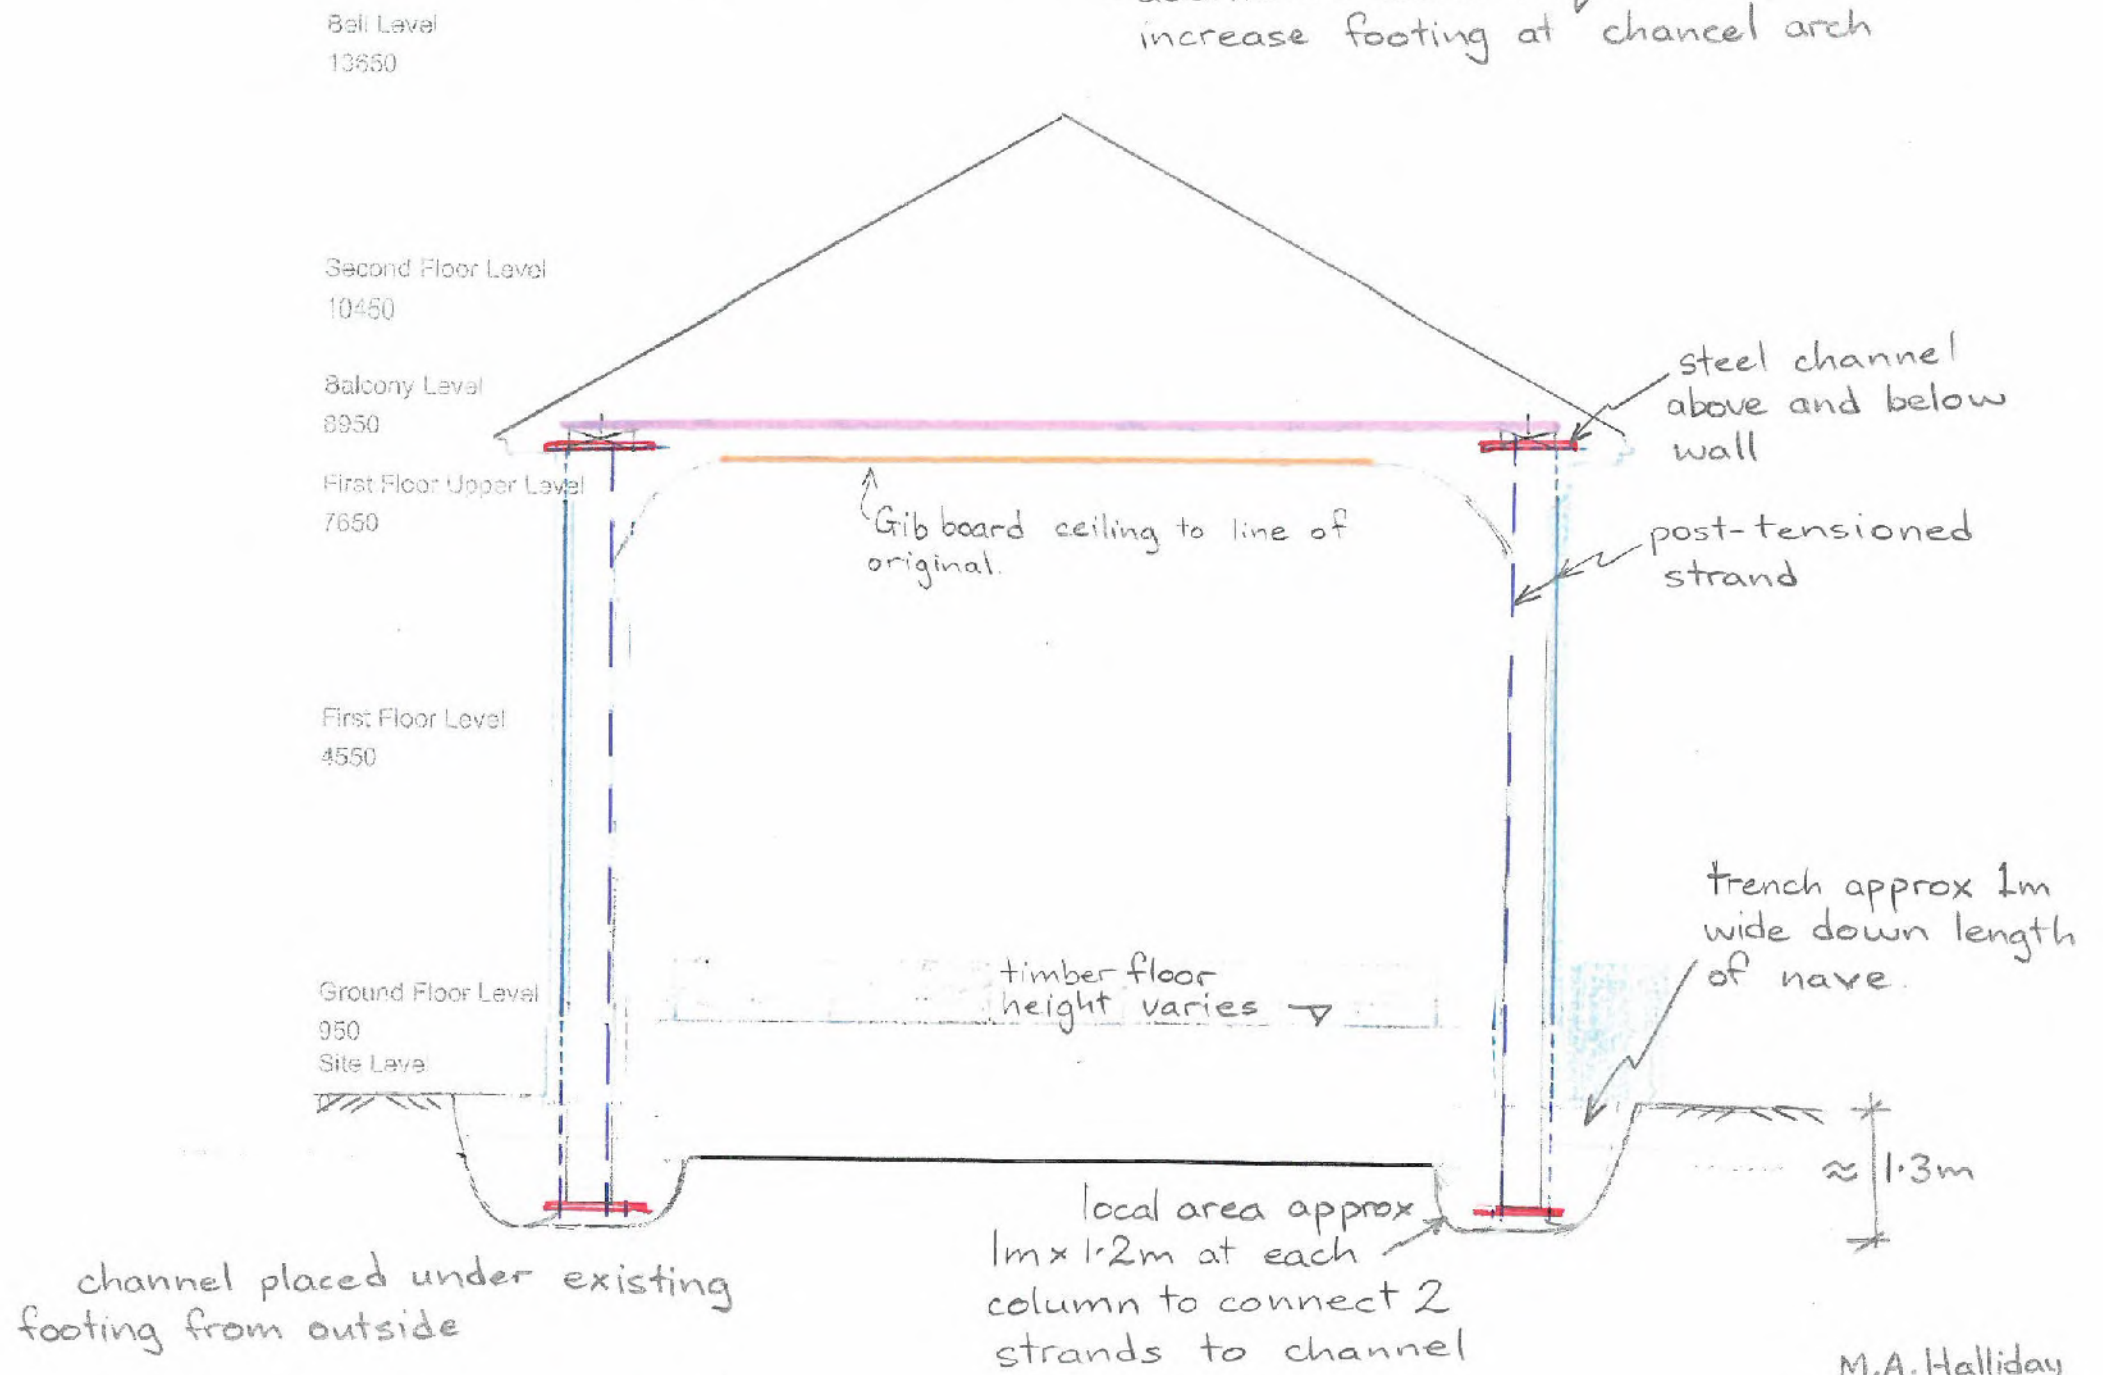 Bell Level
13650
increase footing at chancel arch
Second Floor Level
10450
Balcony Level
8950
First Floor Upper Level
7650
First Floor Level
4550
Ground Floor Level
950
Site Level
steel channel
above and below
wall
Gib board ceiling to line of
original.
post-tensioned
strand
trench approx 1m
wide down length
of nave.
timber floor
height varies
≈ 1.3m
local area approx
1m x 1.2m at each
column to connect 2
strands to channel
channel placed under existing
footing from outside
M.A. Halliday